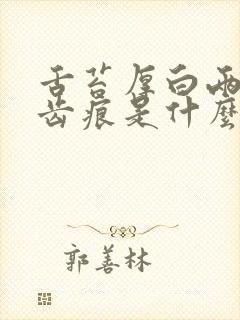 舌苔厚白兩
齿痕是什麼
郭善林